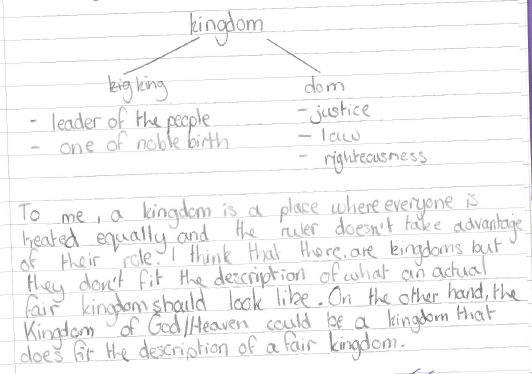 kingdom
king dom
- leader of the people - justice
- one of noble birth - law
- righteousness
To me, a kingdom is a place where everyone is
treated equally and the ruler doesn't take advantage
of their role. I think that there are kingdoms but
they don't fit the description of what an actual
fair kingdom should look like. On the other hand, the
Kingdom of God/Heaven could be a kingdom that
does fit the description of a fair kingdom.